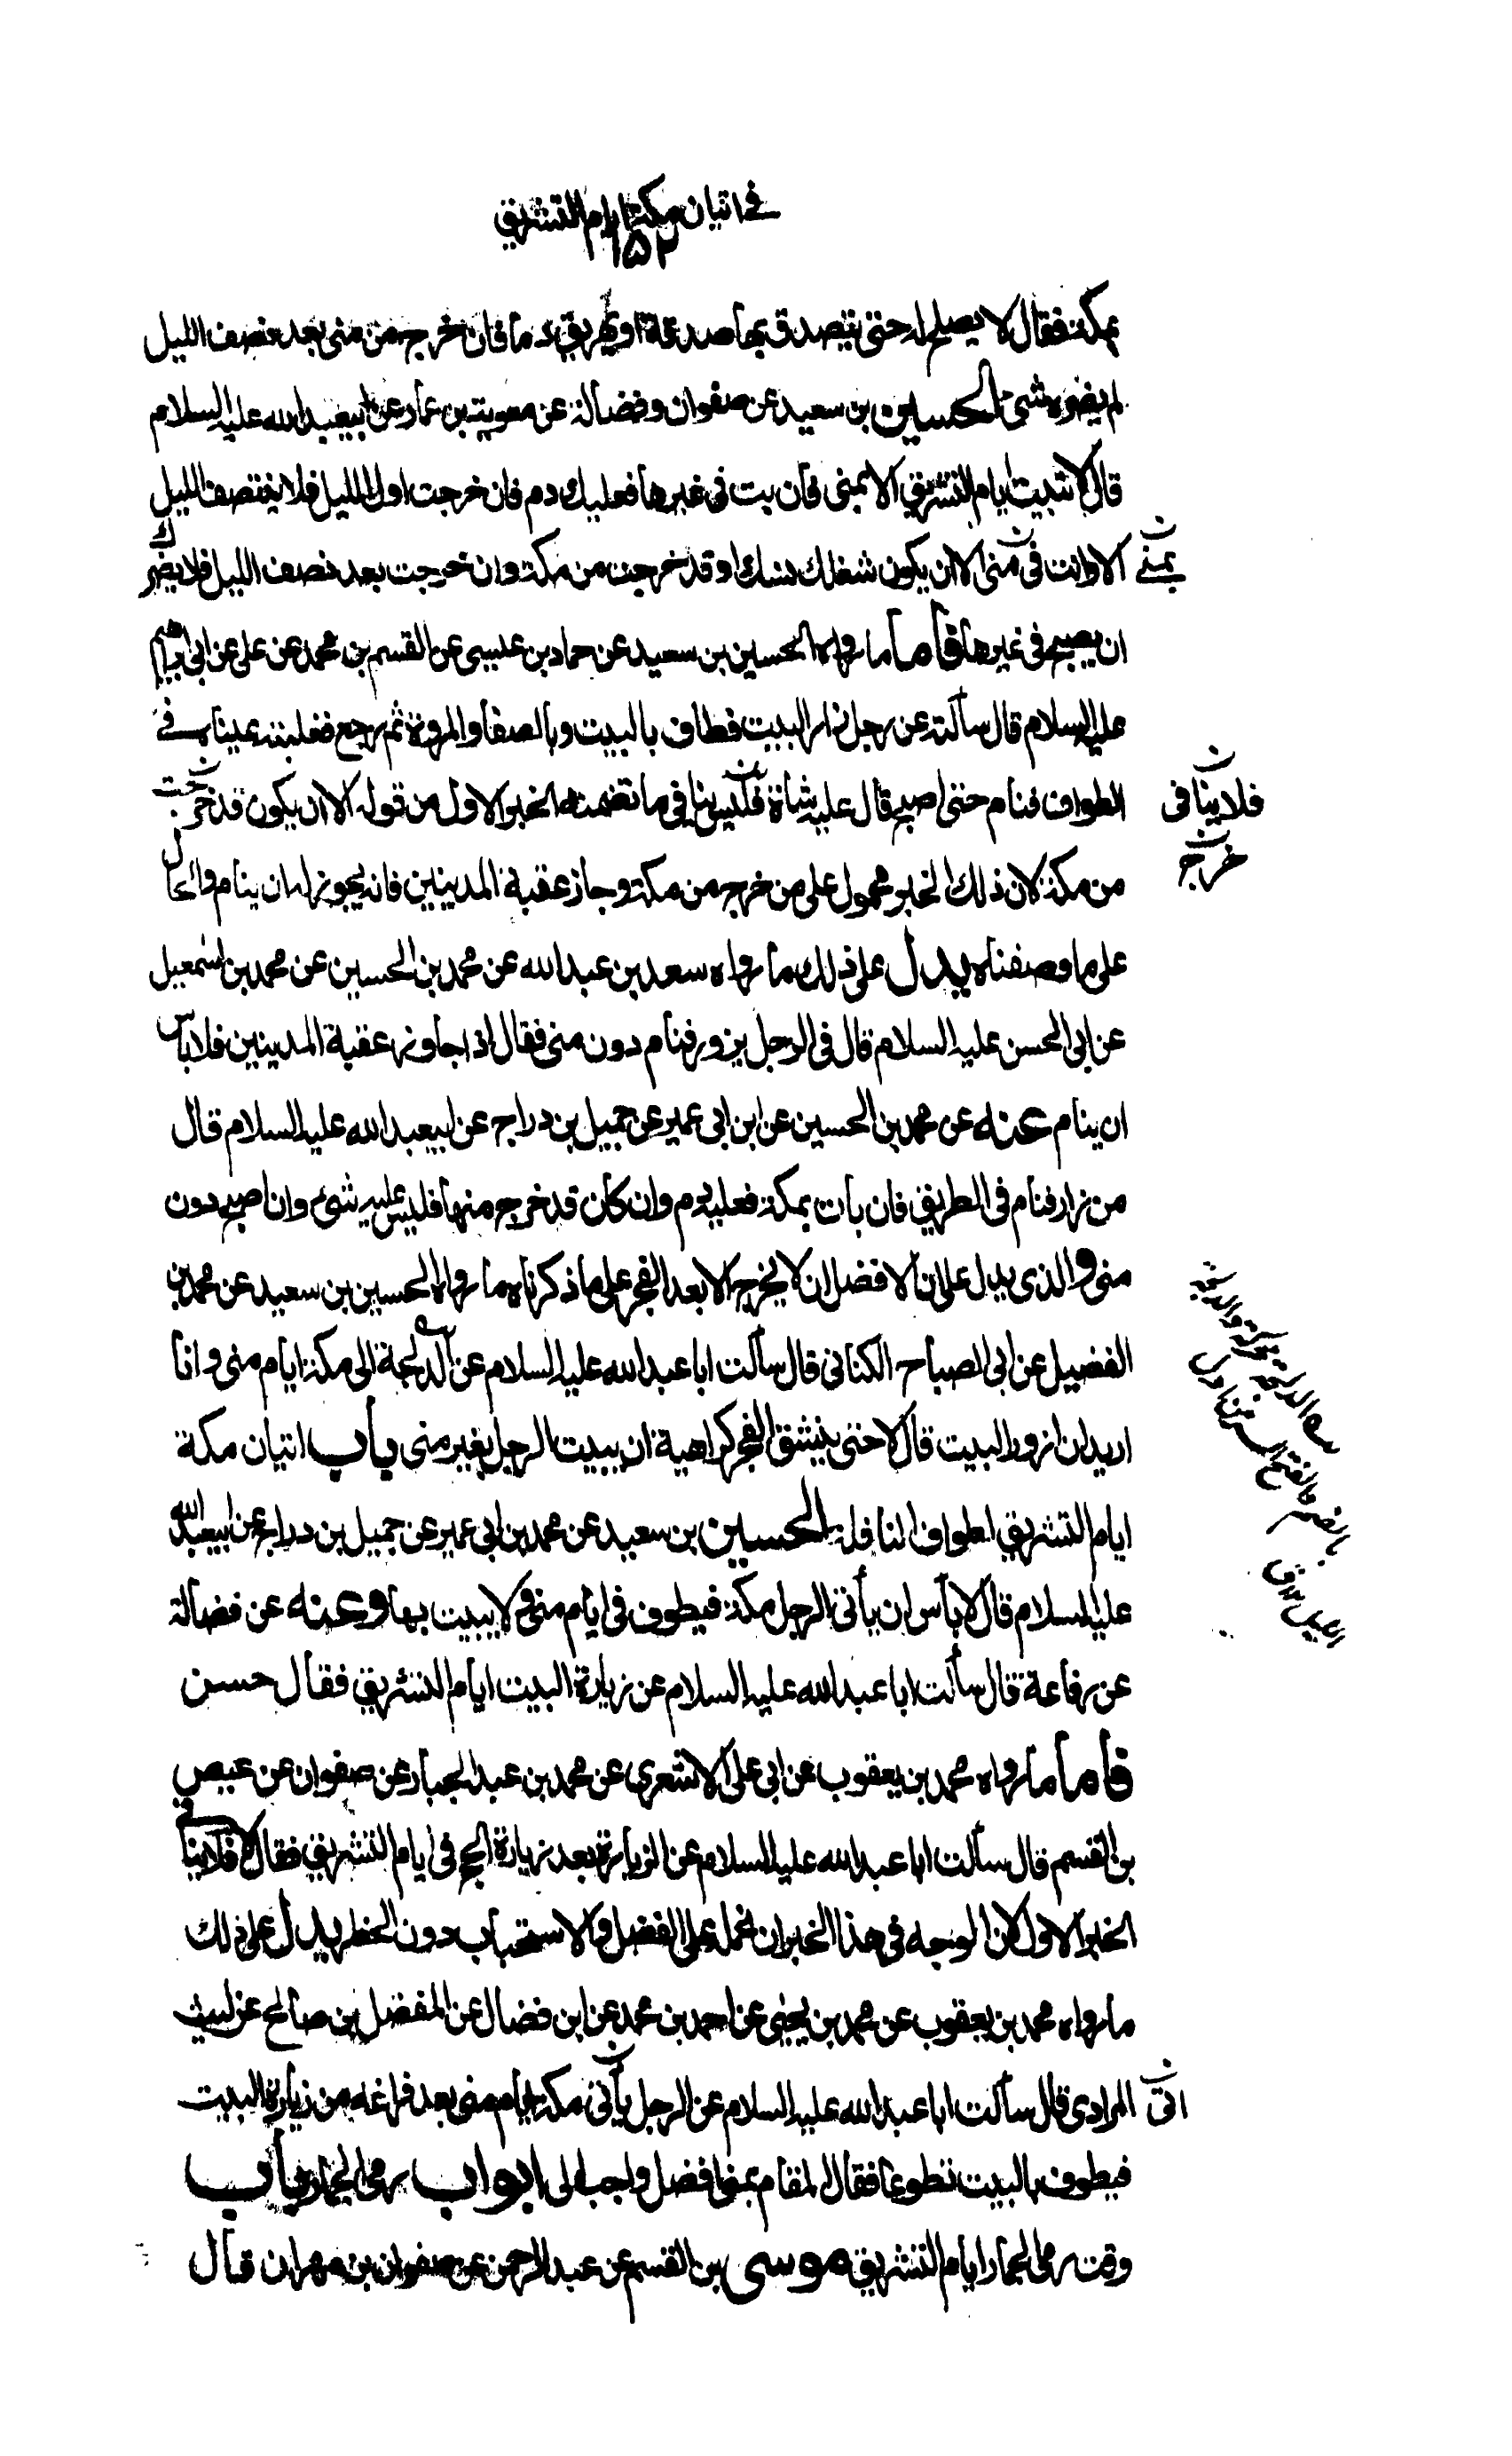 في اتيان مكة ايام التشريق
٦٥٢
بمكة فقال لا يصلح له حتى يتصدق بها صدقة او يهريق دما فان خرج من منى بعد نصف الليل
لم يضره شئ الحسين بن سعيد عن صفوان وفضالة عن معوية بن عمار عن ابيعبد الله عليه السلام
قال لا تبيت ايام التشريق الا بمنى فان بت في غيرها فعليك دم فان خرجت اول الليل فلا ينتصف الليل
الا وانت في منى الا ان يكون شغلك نسك او قد خرجت من مكة وان خرجت بعد نصف الليل فلا يضرك
بمنى ن
ان يصبح في غيرها فاما ما رواه الحسين بن سعيد عن حماد بن عيسى عن القسم بن محمد عن علي عن ابي ابراهيم
عليه السلام قال سألته عن رجل زار البيت فطاف بالبيت وبالصفا والمروة ثم رجع فغلبته عيناه في
الطواف فنام حتى اصبح قال عليه شاة فليس ينافي ما تضمنه الخبر الاول من قوله الا ان يكون قد خرجت
فلا ينافي ن
خرج ن
من مكة لان ذلك الخبر محمول على من خرج من مكة وجاز عقبة المدنيين فانه يجوز له ان ينام والحال
على ما وصفناه يدل على ذلك ما رواه سعد بن عبد الله عن محمد بن الحسين عن محمد بن اسمعيل
عن ابي الحسن عليه السلام قال في الرجل يزور فينام دون منى فقال اذا جاوز عقبة المدنيين فلا بأس
ان ينام عنه عن محمد بن الحسين عن ابن ابي عمير عن جميل بن دراج عن ابيعبد الله عليه السلام قال
من زار فنام في الطريق فان بات بمكة فعليه دم وان كان قد خرج منها فليس عليه شئ وان اصبح دون
منى والذي يدل على ان الافضل ان لا يخرج الا بعد الفجر على ما ذكرناه ما رواه الحسين بن سعيد عن محمد بن
الفضيل عن ابي الصباح الكناني قال سألت ابا عبد الله عليه السلام عن الدلجة الى مكة ايام منى وانا
اريد ان ازور البيت قال لا حتى ينشق الفجر كراهية ان يبيت الرجل بغير منى باب اتيان مكة
ايام التشريق لطواف النافلة الحسين بن سعيد عن محمد بن ابي عمير عن جميل بن دراج عن ابيعبد الله
عليه السلام قال لا بأس ان يأتي الرجل مكة فيطوف في ايام منى ولا يبيت بها وعنه عن فضالة
عن رفاعة قال سألت ابا عبد الله عليه السلام عن زيارة البيت ايام التشريق فقال حسن
فاما ما رواه محمد بن يعقوب عن ابي علي الاشعري عن محمد بن عبد الجبار عن صفوان عن عيص
بن القسم قال سألت ابا عبد الله عليه السلام عن الزيارة بعد زيارة الحج في ايام التشريق فقال لا فلا ينافي
الخبر الاول لان الوجه في هذا الخبر ان نحمله على الفضل والاستحباب دون الحظر يدل على ذلك
ما رواه محمد بن يعقوب عن محمد بن يحيى عن احمد بن محمد عن ابن فضال عن المفضل بن صالح عن ليث
المرادي قال سألت ابا عبد الله عليه السلام عن الرجل يأتي مكة ايام منى بعد فراغه من زيارة البيت
اتى ن
فيطوف بالبيت تطوعا فقال المقام بمنى افضل واحب الى ابواب رمي الجمار باب
وقت رمي الجمار ايام التشريق موسى بن القسم عن عبد الرحمن عن صفوان بن مهران قال